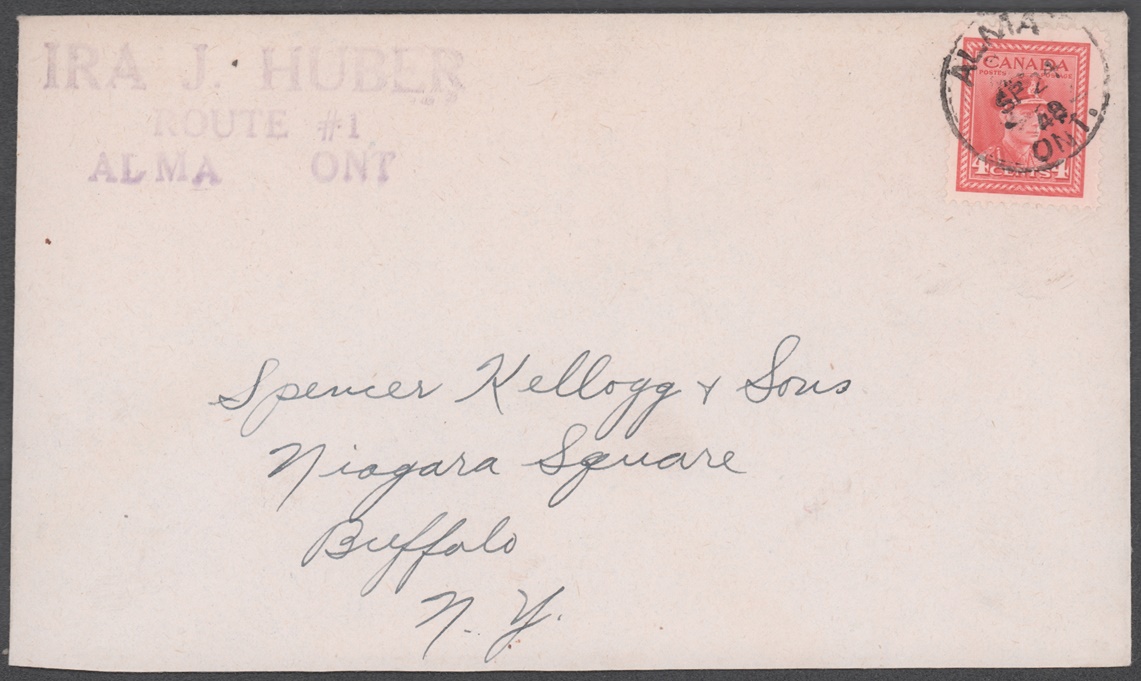 IRA J. HUBER
ROUTE #1
ALMA ONT
ALMA
SP 24
48
ONT.
CANADA
POSTES POSTAGE
4 CENTS 4
Spencer Kellogg & Sons
Niagara Square
Buffalo
N. Y.